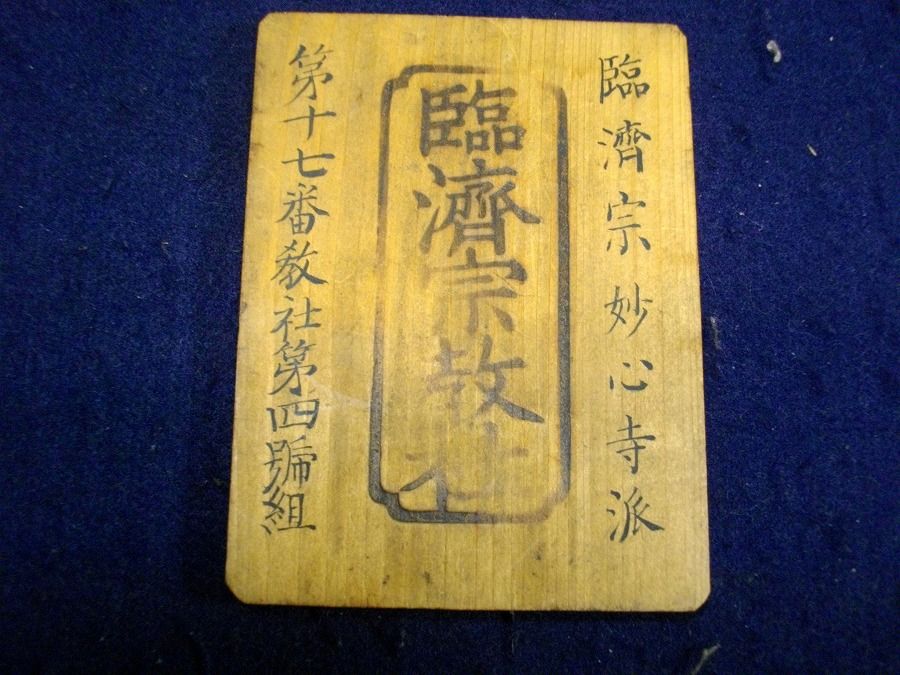 臨濟宗妙心寺派
臨濟宗教社
第十七番教社第四號組